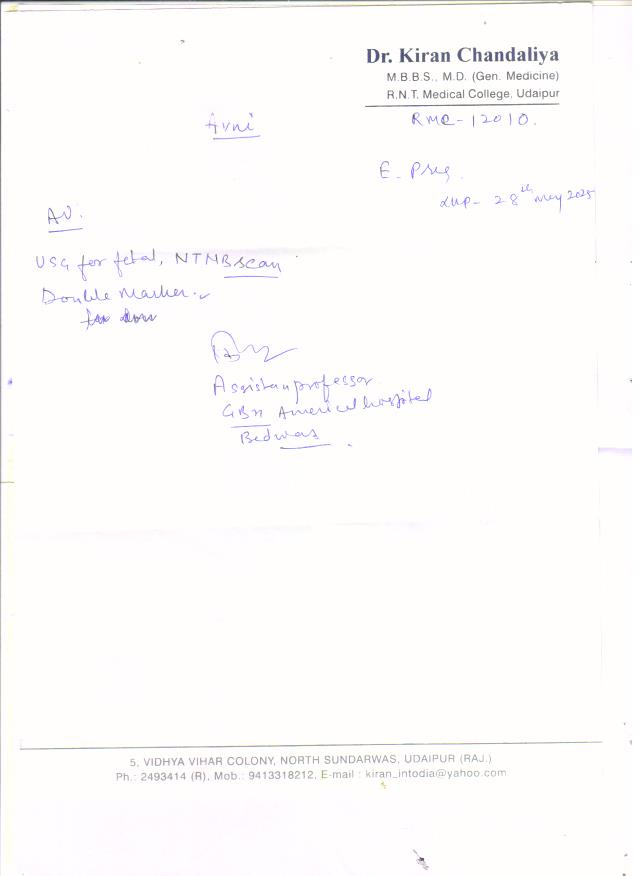 Dr. Kiran Chandaliya
M.B.B.S., M.D. (Gen. Medicine)
R.N.T. Medical College, Udaipur
RMC-12010.
Avni
E. Preg.
LMP- 28th May 2025
Adv.
USG for fetal, NTNB scan
Double Marker.
Assistan professor
GBH American hospital
Bedwas
5, VIDHYA VIHAR COLONY, NORTH SUNDARWAS, UDAIPUR (RAJ.)
Ph.: 2493414 (R), Mob.: 9413318212, E-mail : kiran_intodia@yahoo.com